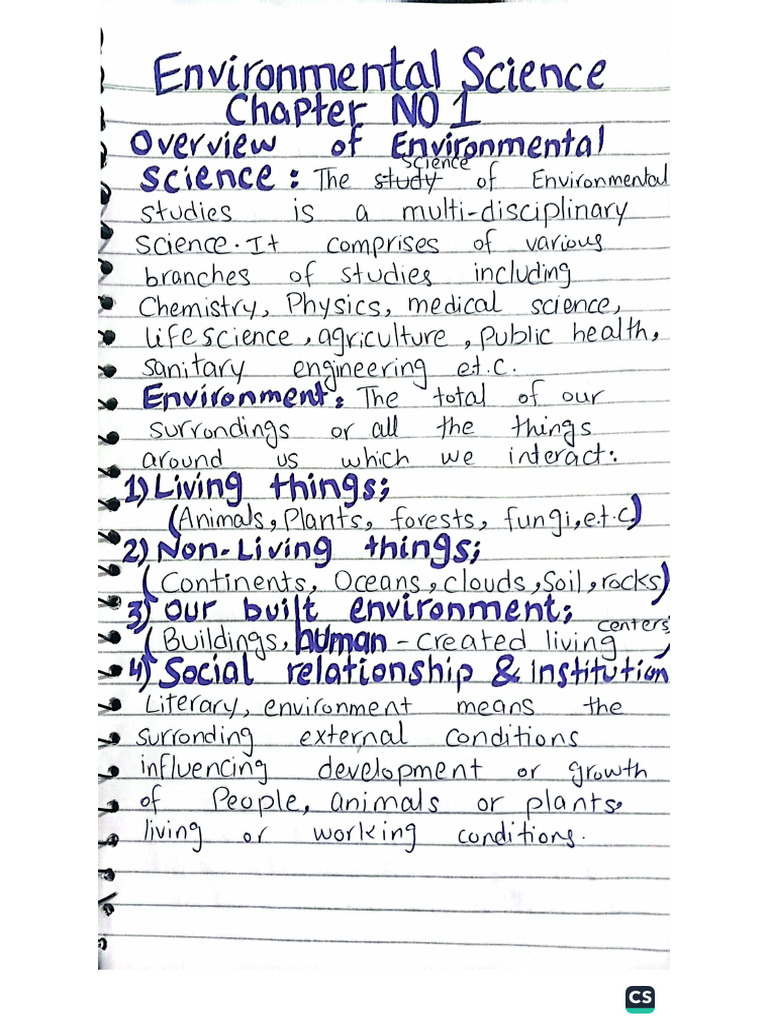 Environmental Science
Chapter NO 1
Overview of Environmental
Science
Science: The study of Environmental
studies is a multi-disciplinary
science. It comprises of various
branches of studies including
Chemistry, Physics, medical science,
life science, agriculture, public health,
sanitary engineering et.c.
Environment: The total of our
surrondings or all the things
around us which we interact:
1) Living things;
(Animals, Plants, forests, fungi, e.t.c)
2) Non-Living things;
(Continents, Oceans, clouds, Soil, rocks)
3) Our built environment;
centers
(Buildings, human-created living )
4) Social relationship & Institution
Literary, environment means the
surronding external conditions
influencing development or growth
of People, animals or plants,
living or working conditions.
CS